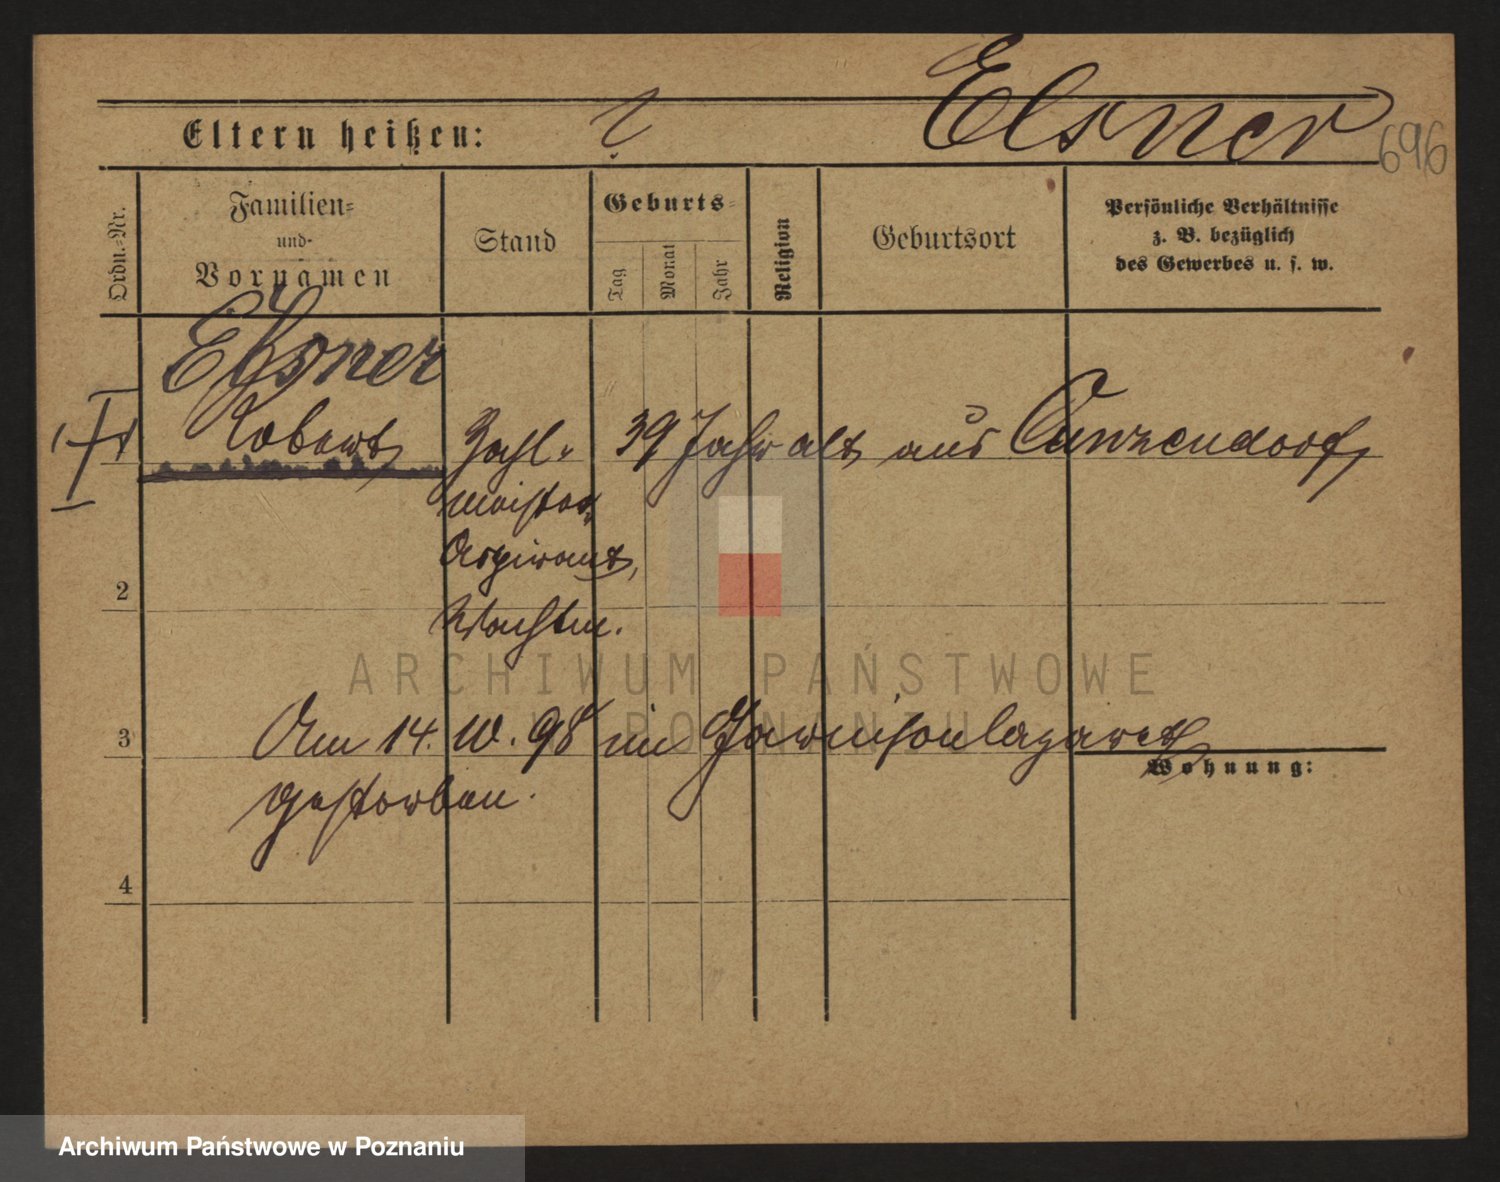 Elsner
696
Eltern heißen: ?
Ordn.-Nr.
Familien-
und
Vornamen
Stand
Geburts-
Tag
Monat
Jahr
Religion
Geburtsort
Persönliche Verhältnisse
z. B. bezüglich
des Gewerbes u. s. w.
Elsner
Robert
Zahl-
39 Jahr alt aus Cunzendorf,
meister
Aspirant,
2
Wachtm.
ARCHIWUM PAŃSTWOWE
W POZNANIU
3
Am 14. 10. 98 im Garnisonlazareth
Wohnung:
gestorben.
4
Archiwum Państwowe w Poznaniu